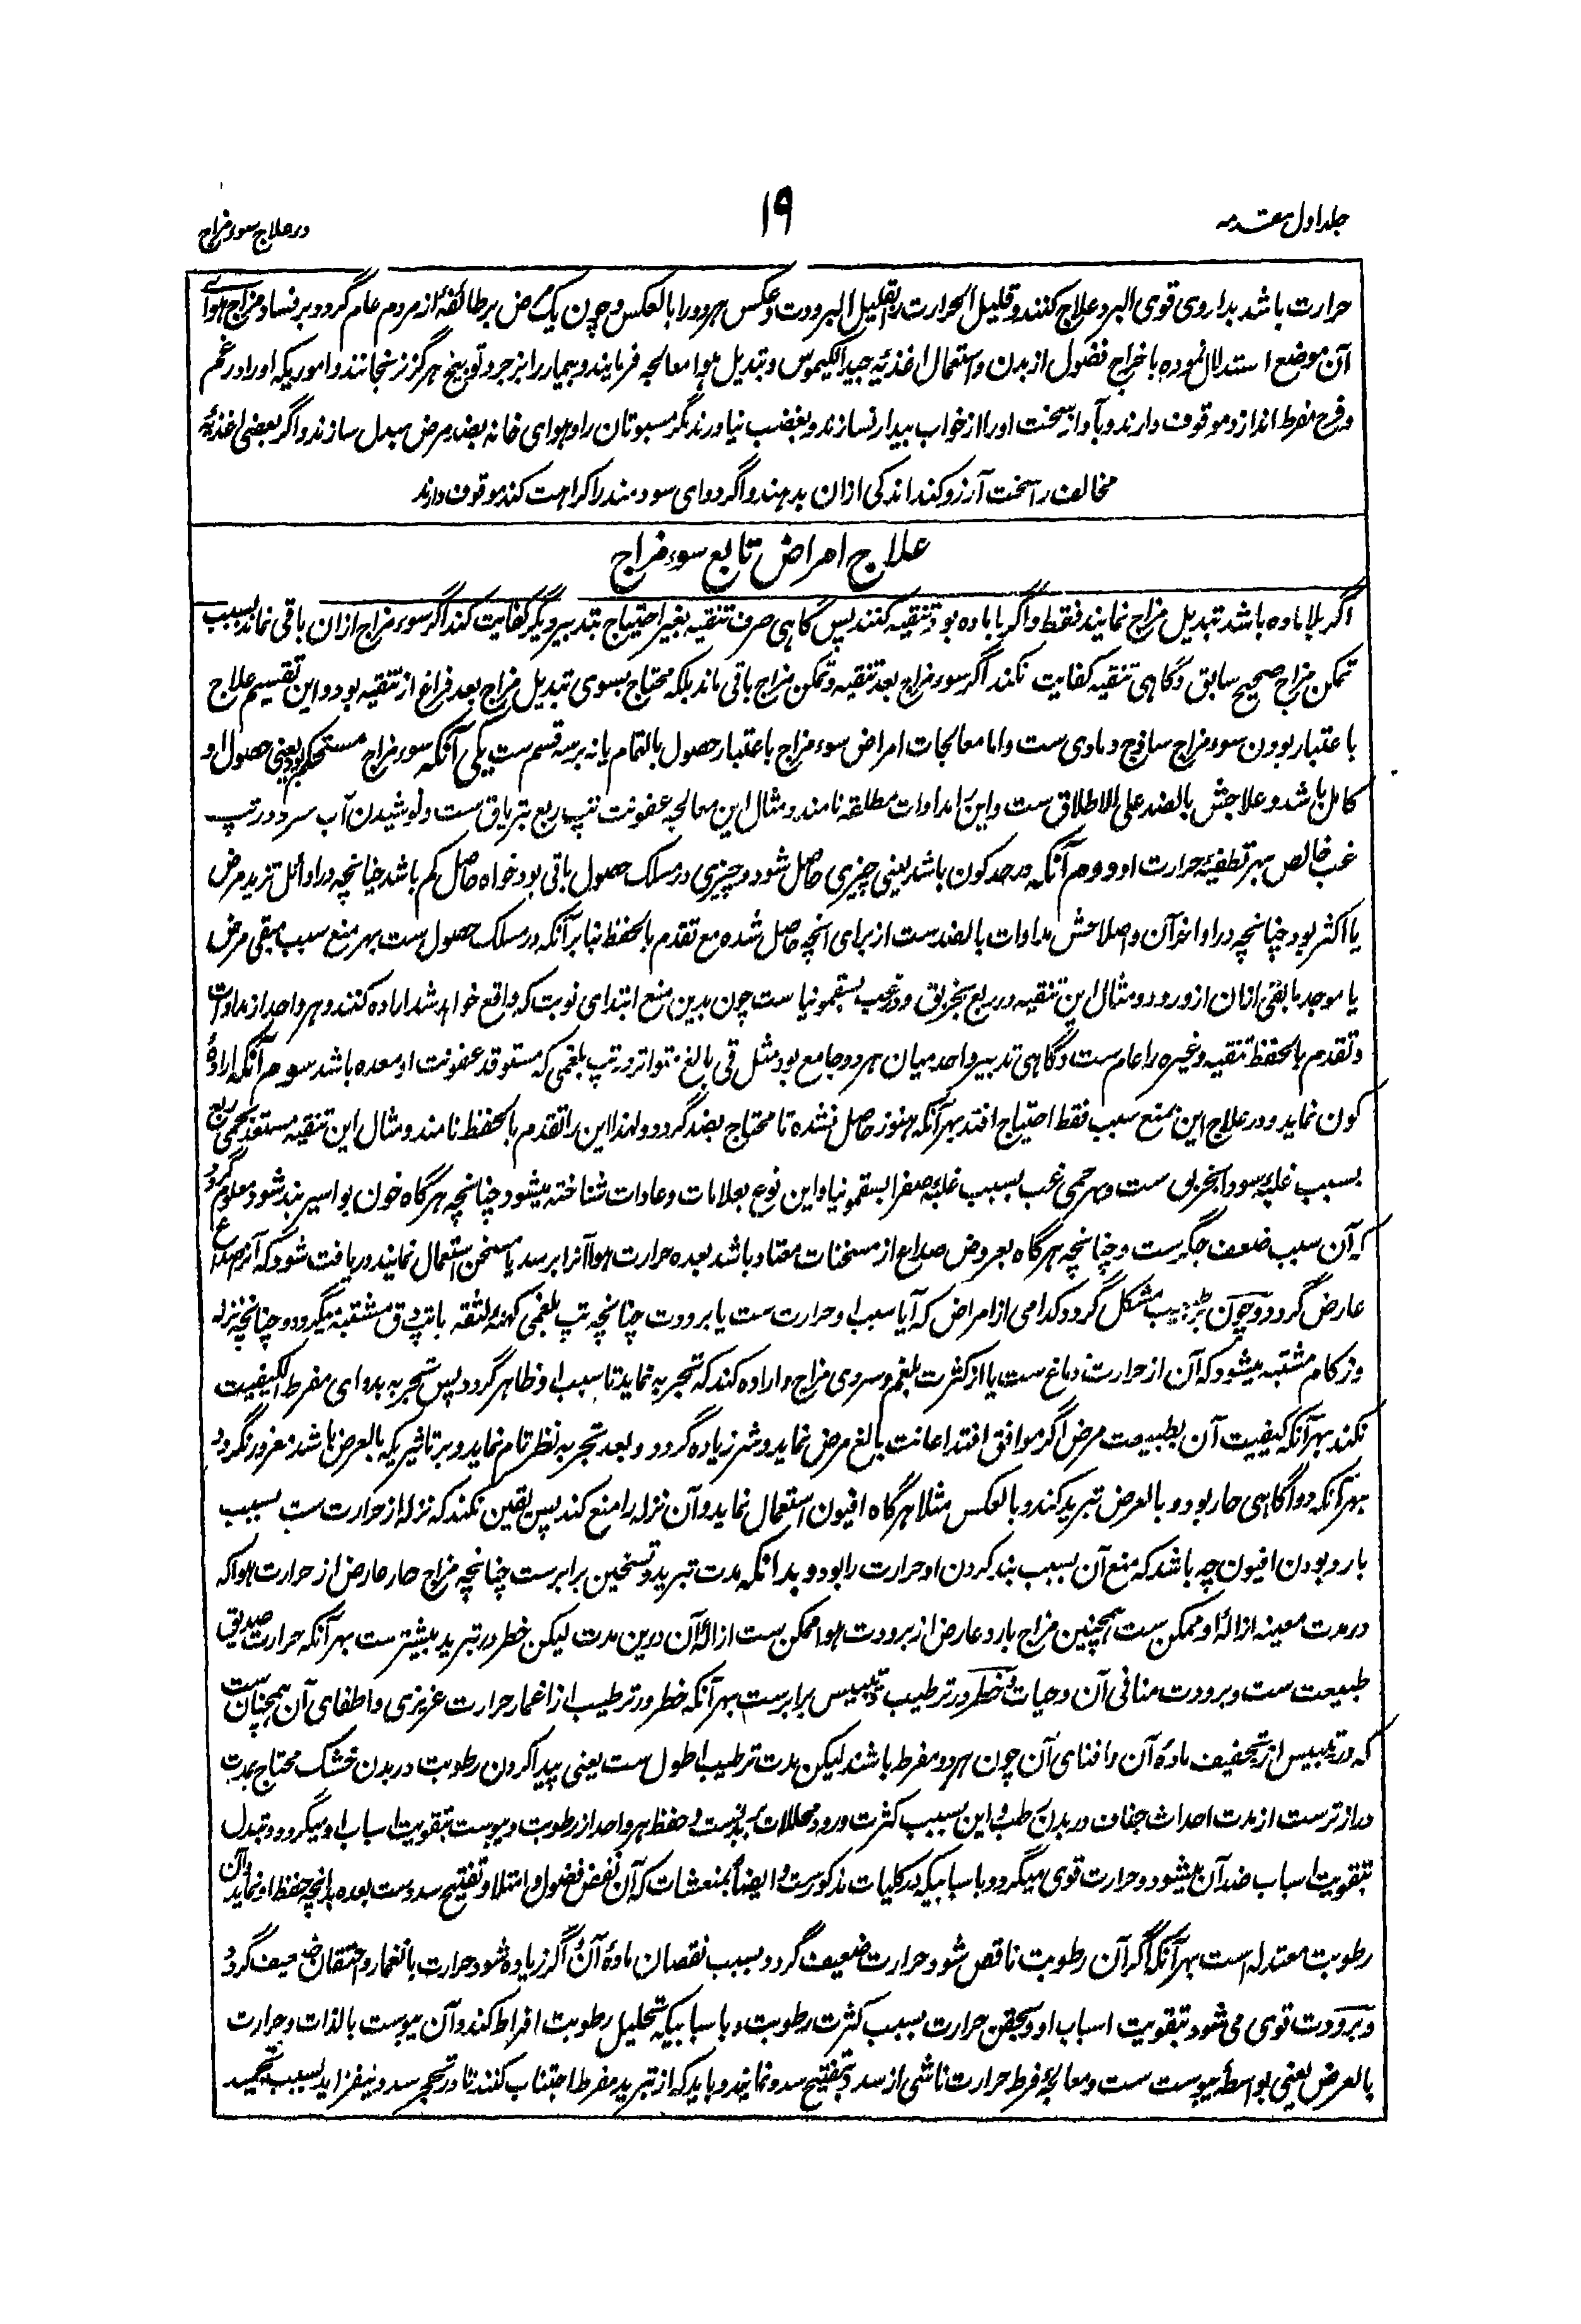 جلد اول مقدمه
۱۹
در علاج سوء مزاج
حرارت باشد بداروی قوی البرد علاج کنند و قلیل الحرارت را بقلیل البرودت و عکس هر دو را بالعکس و چون یک مرض بر طائفهٔ از مردم عام گردد بر فساد مزاج هوای
آن موضع استدلال نموده باخراج فضول از بدن و استعمال اغذیهٔ جید الکیموس و تبدیل هوا معالجه فرمایند و بیمار را بزجر و توبیخ هرگز نرنجانند و اموریکه او را در غم
و فرح مفرط اندازد موقوف دارند و بآواز سخت او را از خواب بیدار نسازند و بغضب نیاورند مگر مسبوتان را و هوای خانه بضد مرض مبدل سازند و اگر بعضی اغذیهٔ
مخالف را سخت آرزو کند اندکی ازان بدهند و اگر دوای سودمند را کراهت کند موقوف دارند
علاج امراض تابع سوء مزاج
اگر بلا ماده باشد تبدیل مزاج نمایند فقط و اگر با ماده بود تنقیه کنند پس گاهی صرف تنقیه بغیر احتیاج بتدبیر دیگر کفایت کند اگر سوء مزاج ازان باقی نماند بسبب
تمکن مزاج صحیح سابق و گاهی تنقیه کفایت نکند اگر سوء مزاج بعد تنقیه و تمکن مزاج باقی ماند بلکه محتاج بسوی تبدیل مزاج بعد فراغ از تنقیه بود و این تقسیم علاج
باعتبار بودن سوء مزاج ساذج و مادی ست و اما معالجات امراض سوء مزاج باعتبار حصول بالتمام یا نه بر سه قسم ست یکی آنکه سوء مزاج مستحکم بود یعنی حصول او
کامل باشد و علاجش بالضد علی الاطلاق ست و این را مداوات مطلقه نامند و مثال این معالجه عفونت تپ ربع بتریاق ست و نوشیدن آب سرد در تپ
غب خالص بهر تطفیهٔ حرارت او دوم آنکه در حد کون باشد یعنی چیزی حاصل شود و چیزی در مسلک حصول باقی بود خواه حاصل کم باشد چنانچه در اوائل تزید مرض
یا اکثر بود چنانچه در اواخر آن و اصلاحش مداوات بالضد ست از برای انچه حاصل شده مع تقدم بالحفظ بنا بر آنکه در مسلک حصول ست بهر منع سبب مبقی مرض
یا موجد مابقی ازان از ورود و مثال این تنقیه در ربع بخربق و در غب بسقمونیا ست چون بدین منع ابتدای نوبت که واقع خواهد شد اراده کنند و هر واحد از مداوات
و تقدم بالحفظ تنقیه و غیره را عام ست و گاهی تدبیر واحد میان هر دو جامع بود مثل قی بالغ متواتر در تپ بلغمی که مستوقد عفونت او معده باشد سوم آنکه ارادهٔ
کون نماید و در علاج این بمنع سبب فقط احتیاج افتد بهر آنکه هنوز حاصل نشده تا محتاج بضد گردد و لهذا این را تقدم بالحفظ نامند و مثال این تنقیه مستعد حمی ربع
بسبب غلبهٔ سودا بخربق ست و بهر حمی غب بسبب غلبهٔ صفرا بسقمونیا و این نوع بعلامات و عادات شناخته میشود چنانچه هر گاه خون بواسیر بند شود معلوم گردد
که آن سبب ضعف جگر ست و چنانچه هر گاه بعروض صداع از مسخنات معتاد باشد بعده حرارت هوا آنرا برسد یا مسخن استعمال نمایند دریافت شود که آنرا صداع
عارض گردد و چون بر طبیب مشکل گردد کدامی از امراض که آیا سبب او حرارت ست یا برودت چنانچه تپ بلغمی کهنه لثقه باتپ دق مشتبه میگردد و چنانچه نزله
و زکام مشتبه میشود که آن از حرارت دماغ ست یا از کثرت بلغم و سردی مزاج و اراده کند که تجربه نماید تا سبب او ظاهر گردد پس تجربه بدوای مفرط الکیفیت
نکند بهر آنکه کیفیت آن بطبیعت مرض اگر موافق افتد اعانت بالغ مرض نماید و شر زیاده گردد و بعد تجربه نظر تام نماید و بر تاثیریکه بالعرض باشد مغرور نگردد
بهر آنکه دوا گاهی حار بود و بالعرض تبرید کند و بالعکس مثلا هر گاه افیون استعمال نماید و آن نزله را منع کند پس یقین نکند که نزله از حرارت ست بسبب
بارد بودن افیون چه باشد که منع آن بسبب بند کردن او حرارت را بود و بدانکه مدت تبرید و تسخین برابرست چنانچه مزاج حار عارض از حرارت هوا که
در مدت معینه ازالهٔ او ممکن ست همچنین مزاج بارد عارض از برودت هوا ممکن ست ازالهٔ آن درین مدت لیکن خطر در تبرید بیشتر ست بهر آنکه حرارت صدیق
طبیعت ست و برودت منافی آن و حیات و خطر در ترطیب و تیبیس برابر ست بهر آنکه خطر در ترطیب از اغمار حرارت غریزی و اطفای آن همچنان ست
که در تیبیس از تجفیف مادهٔ آن و افنای آن چون هر دو مفرط باشند لیکن مدت ترطیب اطول ست یعنی پیدا کردن رطوبت در بدن خشک محتاج بمدت
دراز ترست از مدت احداث جفاف در بدن رطب و این بسبب کثرت ورود محللات بر بدنست و حفظ هر واحد از رطوبت و یبوست بتقویت اسباب او میگردد و تبدل
بتقویت اسباب ضد آن میشود و حرارت قوی میگردد باسبابیکه در کلیات مذکورست و ایضاً بمنعشات که آن نفض فضول و امتلا و تفتیح سددست بعده بانچه حفظ او نماید و آن
رطوبت معتدله است بهر آنکه اگر آن رطوبت ناقص شود حرارت ضعیف گردد بسبب نقصان مادهٔ آن و اگر زیاده شود حرارت بانغمار و احتقان ضعیف گردد
و برودت قوی می شود بتقویت اسباب او و بحقن حرارت بسبب کثرت رطوبت و باسبابیکه تحلیل رطوبت افراط کند و آن یبوست بالذات و حرارت
بالعرض یعنی بواسطهٔ یبوست ست و معالجهٔ فرط حرارت ناشی از سدد بتفتیح سدد نمایند و باید که از تبرید مفرط اجتناب کنند تا در تحجر سدد نیفزاید بسبب تجمید